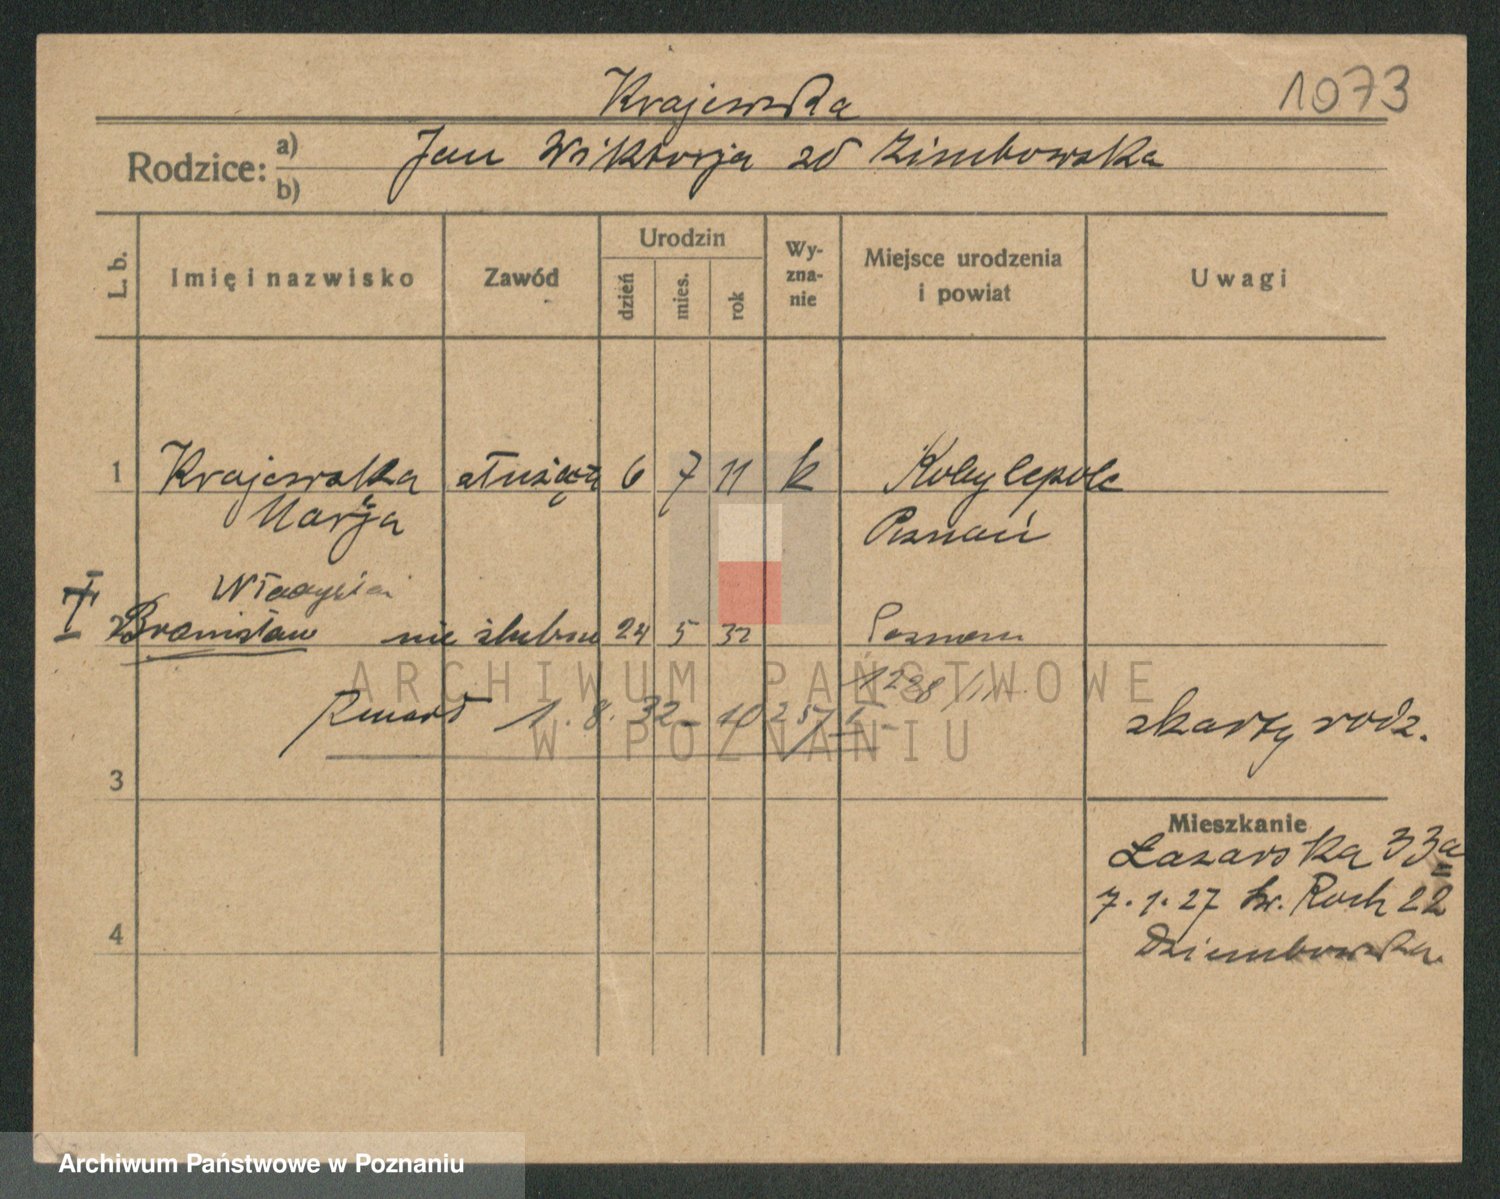 Krajewska
1073
Rodzice: a) b) Jan Wiktorja zd Zimbowska
L. b. Imię i nazwisko Zawód Urodzin dzień mies. rok Wyznanie Miejsce urodzenia i powiat Uwagi
1 Krajewska służąca 6 7 11 k Kobylepole
Marja Poznań
Władysław
2 Bronisław nie ślubne 24 5 32 Poznań
1288/
zmarł 1.8.32 - 10257
z karty rodz.
3
Mieszkanie
Łazarska 33a
7.1.27 św. Roch 22
4
Dziembowska.
ARCHIWUM PAŃSTWOWE
W POZNANIU
Archiwum Państwowe w Poznaniu